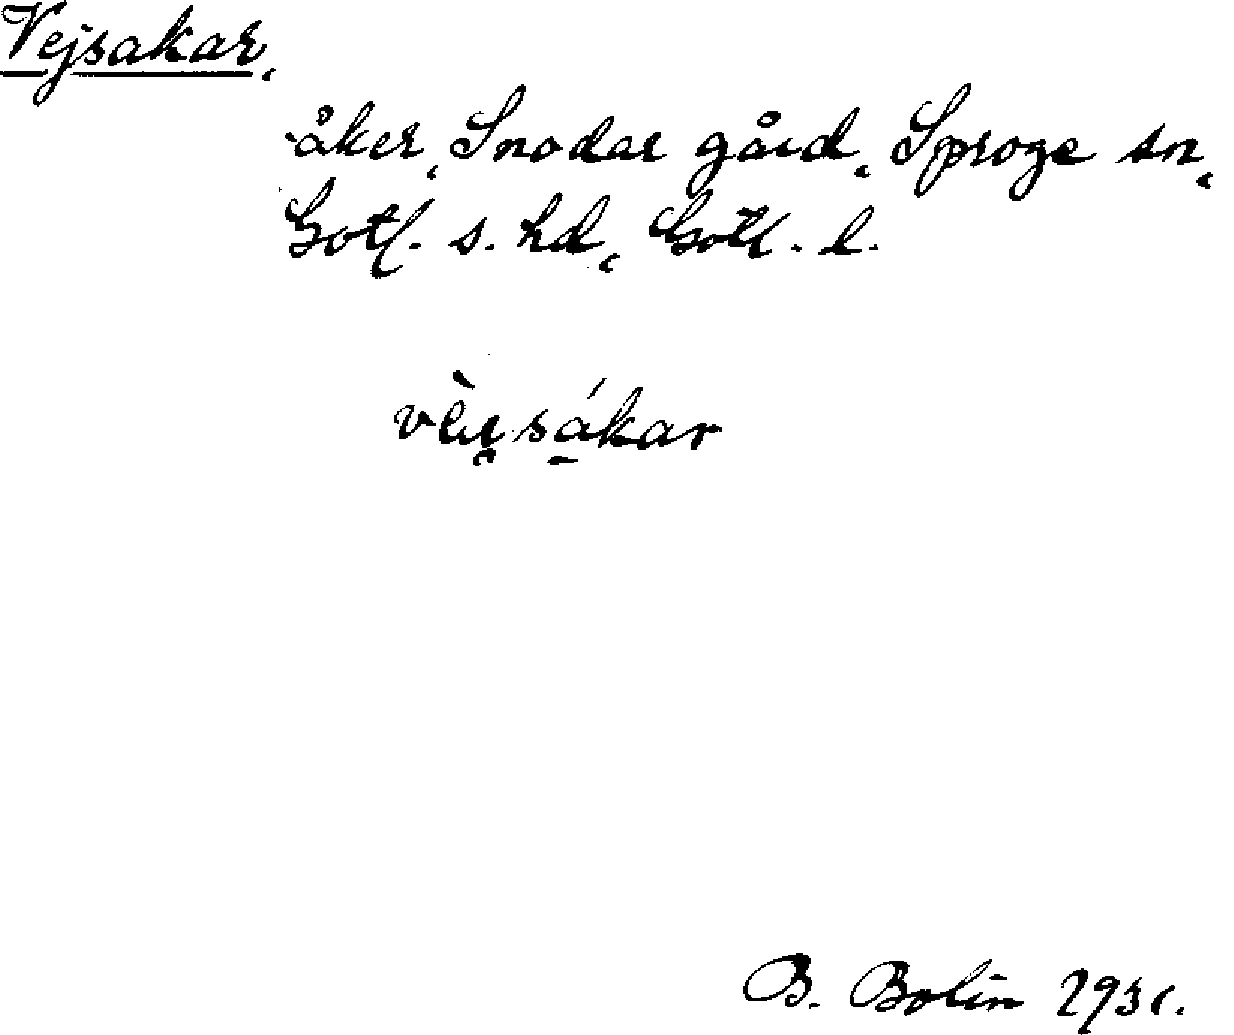 Vejsakar,
åker, Snodar gård, Sproge sn,
Gotl. s. hd, Gotl. l.
vèi̯sá̱kar
B. Bolin 1931.